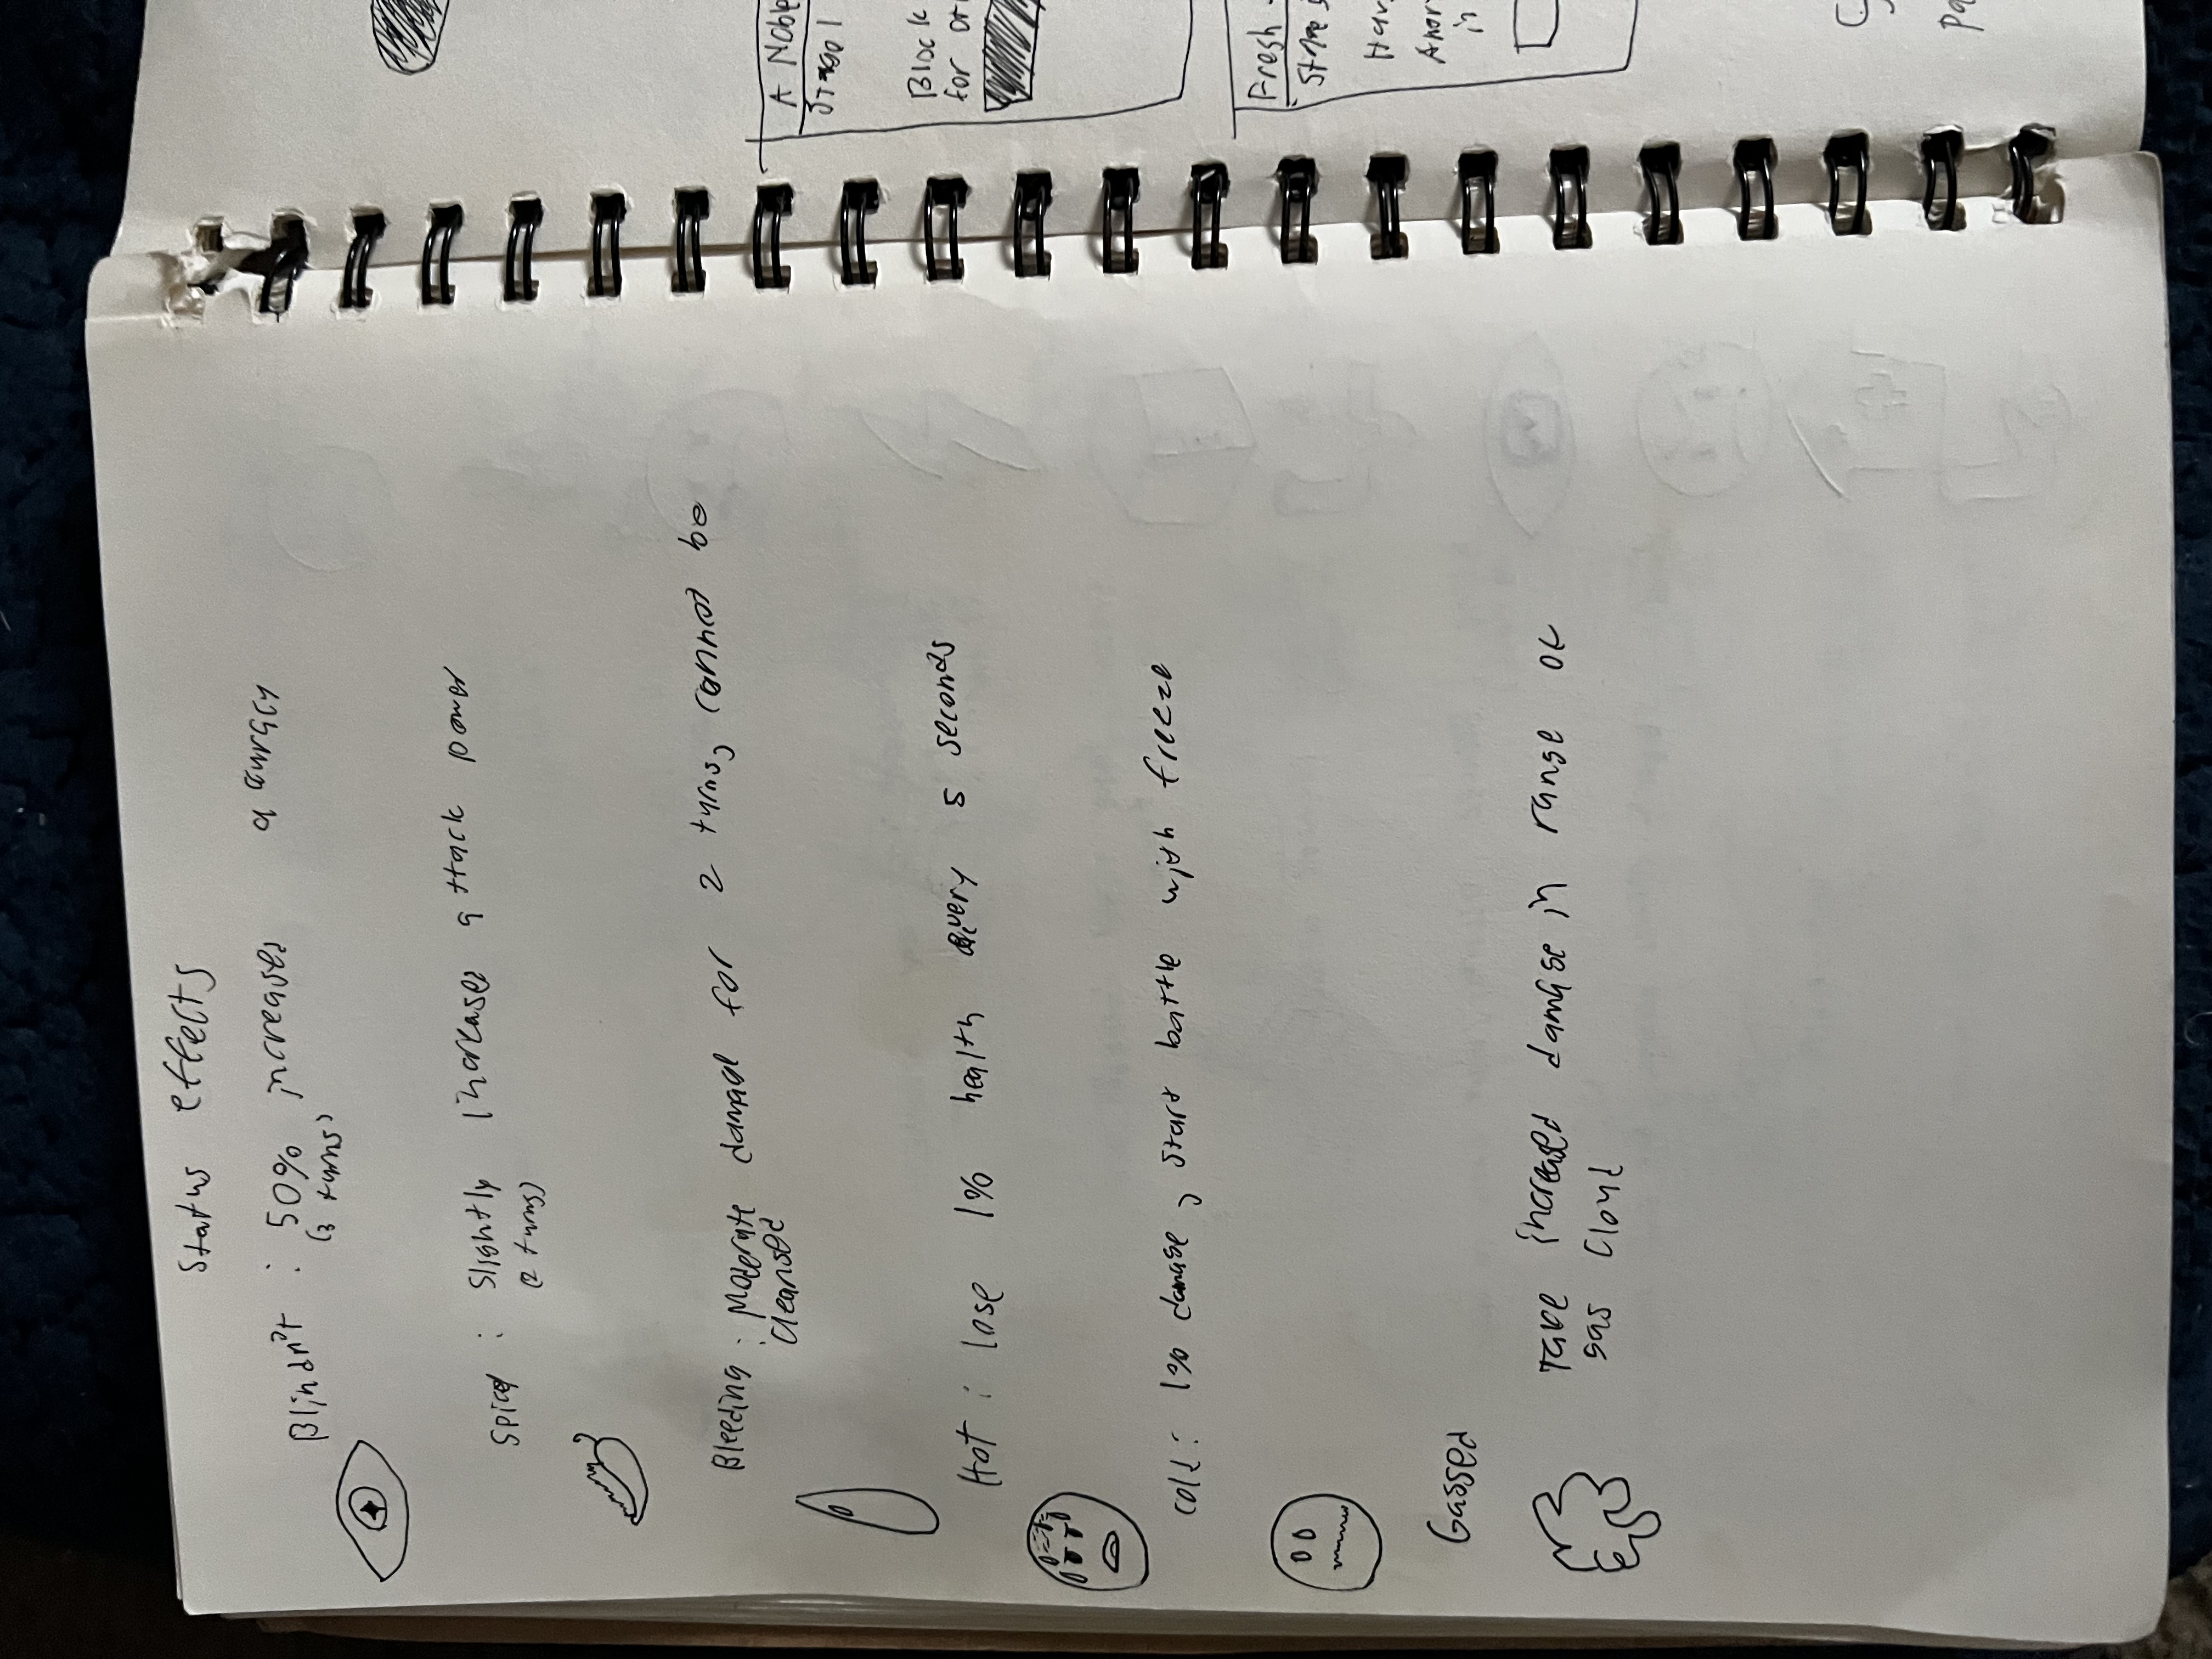 Status effects
Blindn't : 50% increases accuracy
(3 turns)
Spiced : Slightly increases attack power
(2 turns)
Bleeding : Moderate damage for 2 turns, cannot be
cleansed
Hot : lose 1% health every 5 seconds
Cold : 1% damage, start battle with freeze
Gassed
Take increased damage in range of
gas cloud
A Noble
Stage 1
Block
for
Fresh
in